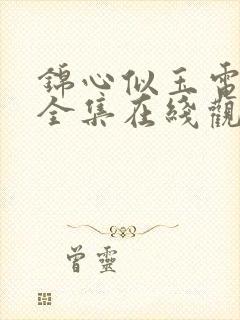 錦心似玉電
全集在綫觀
曾靈